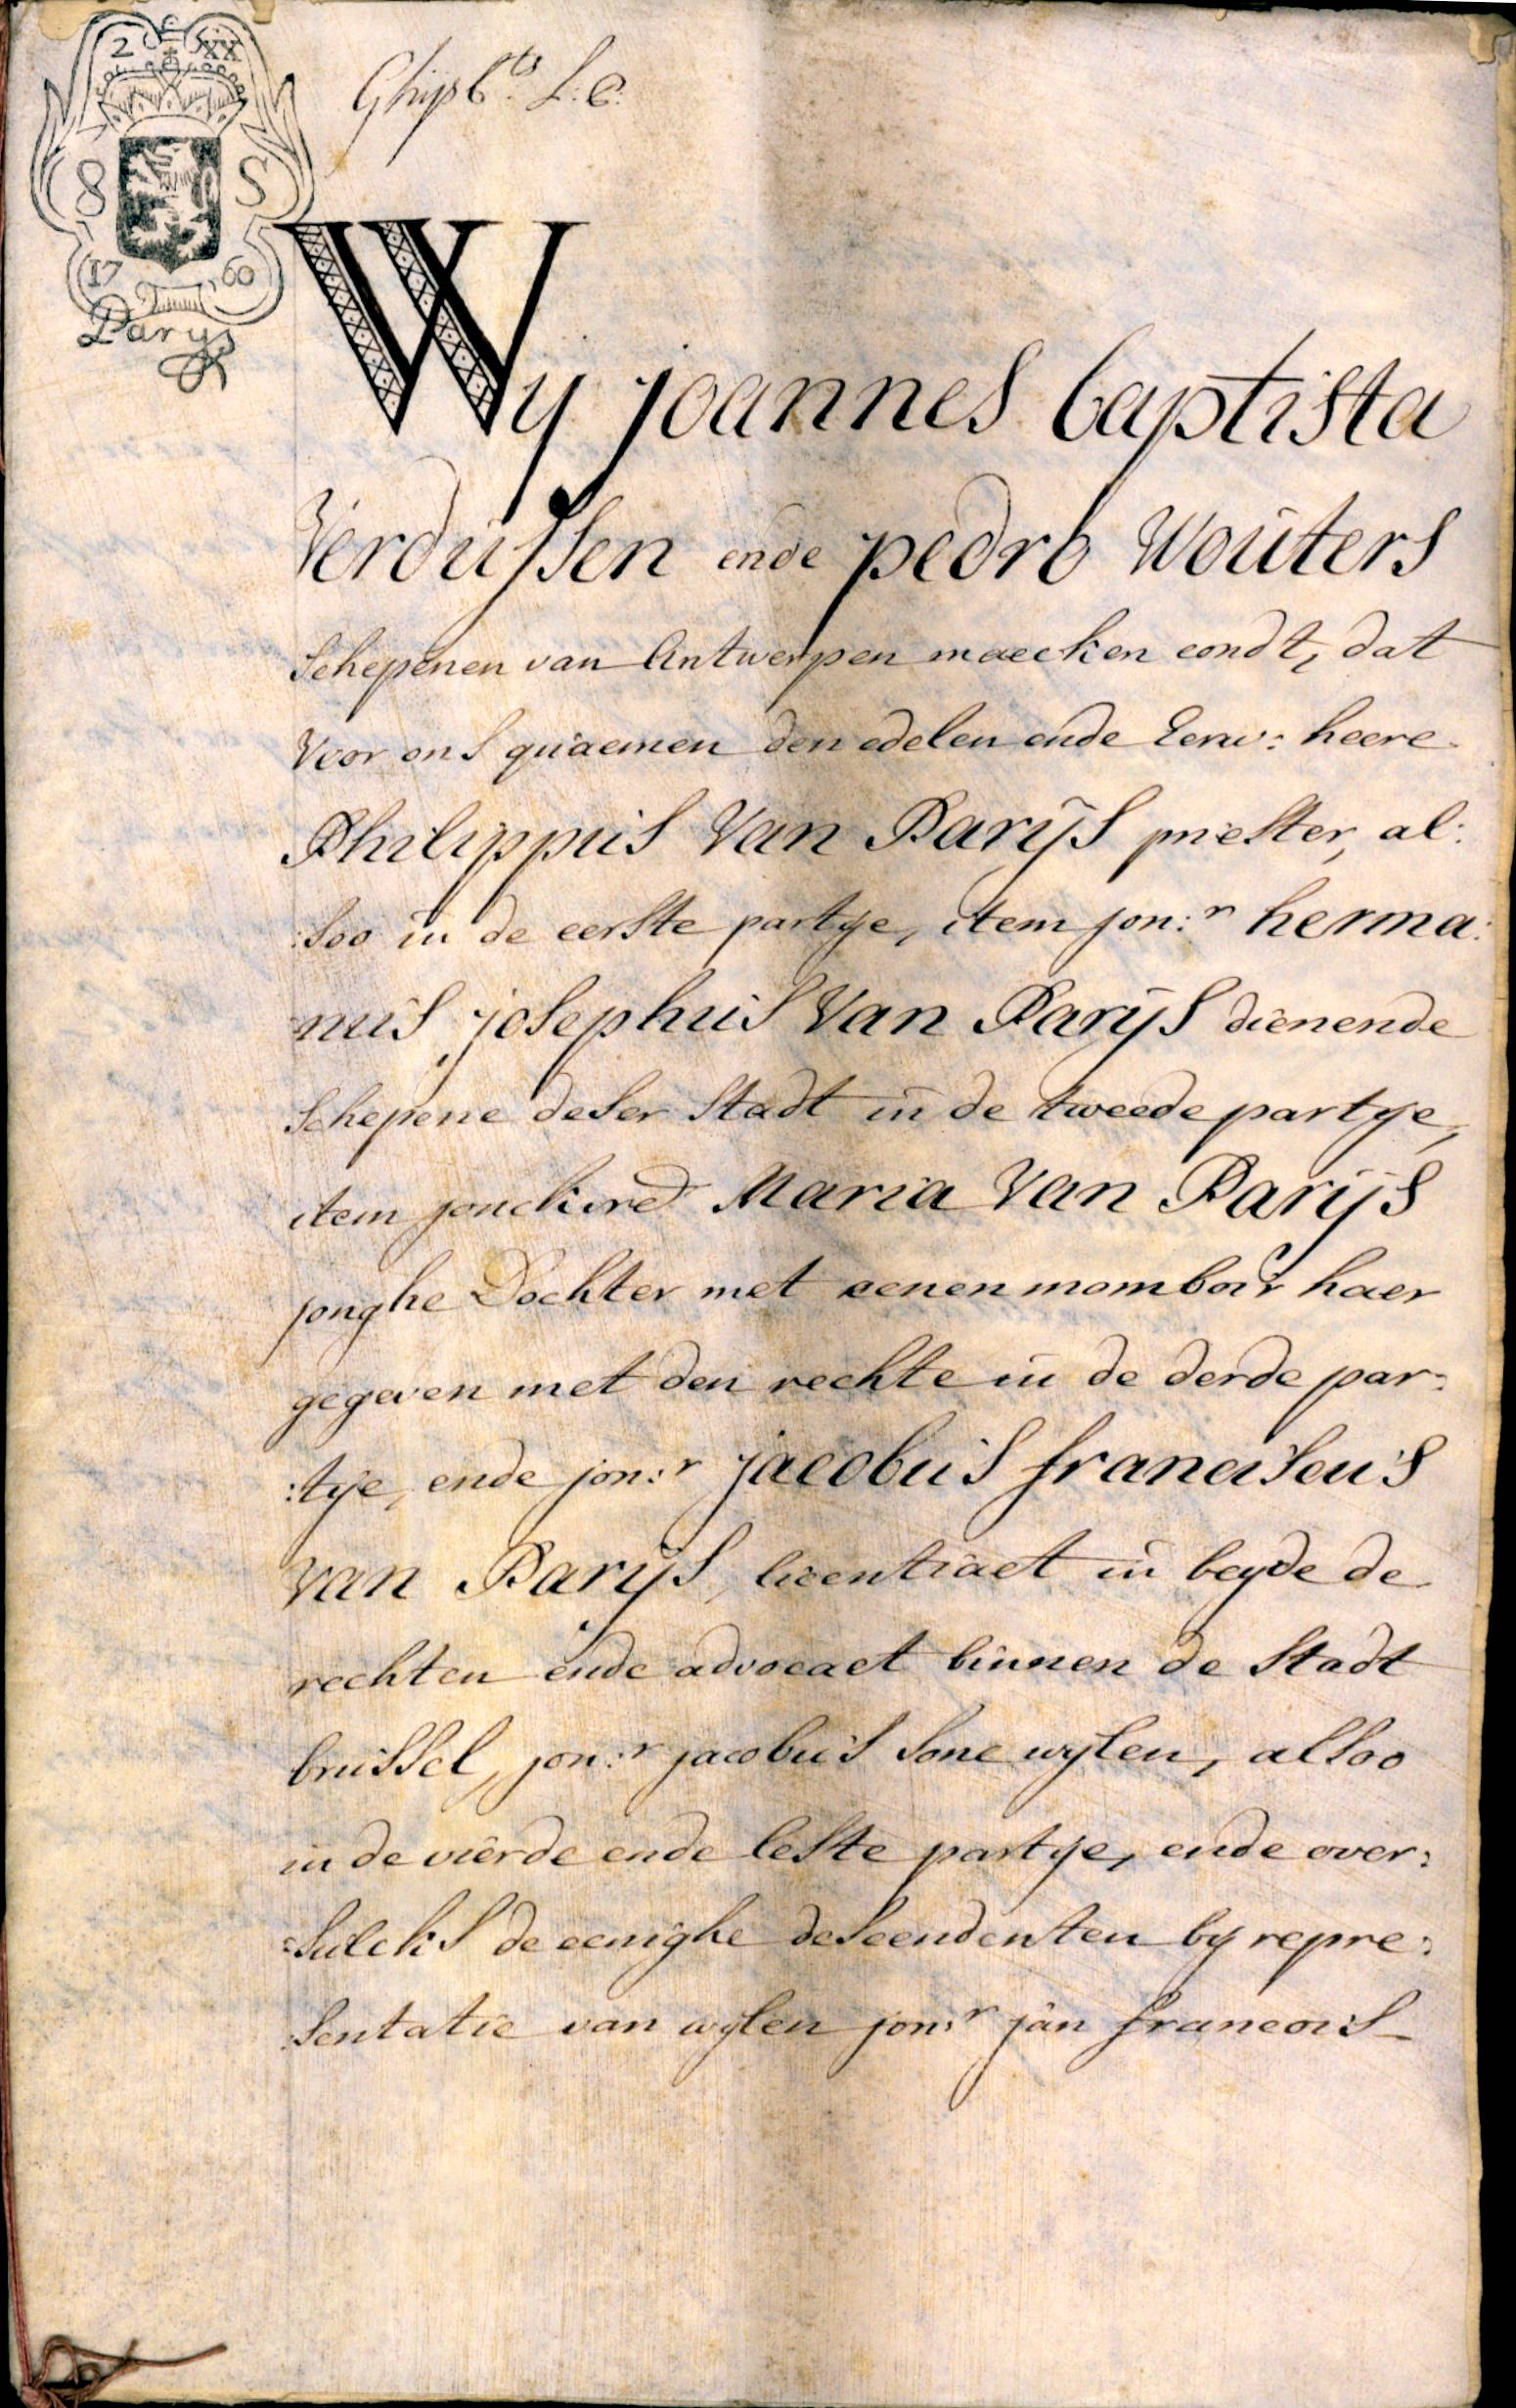 2 XX
8 S
17 60
Parys
Ghijsb.ts L: C:
Wij joannes baptista
Verdussen ende pedro Wouters
Schepenen van Antwerpen maecken condt, dat
Voor ons quaemen den edelen ende Eerw: heere
Philippus Van Parijs priester, al:
:soo in de eerste partije, item jon:r herma:
nus josephus Van Parijs dienende
Schepene deser Stadt in de tweede partije,
item jonckvre Maria Van Parijs
jonghe Dochter met eenen momboir haer
gegeven met den rechte in de derde par:
:tije, ende jon:r jacobus franciscus
Van Parijs, licentiaet in beyde de
rechten ende advocaet binnen de Stadt
brussel, jon:r jacobus sone wijlen, alsoo
in de vierde ende leste partije, ende over:
:sulcks de eenighe descendenten by repre:
:sentatie van wijlen jon:r jan francois